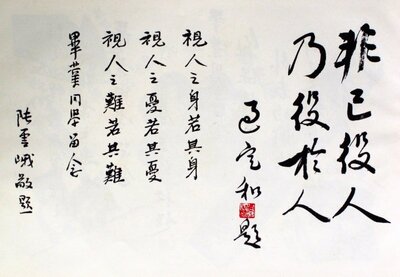 非己役人
乃役於人
過定和題
視人之身若其身
視人之憂若其憂
視人之難若其難
畢業同學留念
陸雲峨敬題